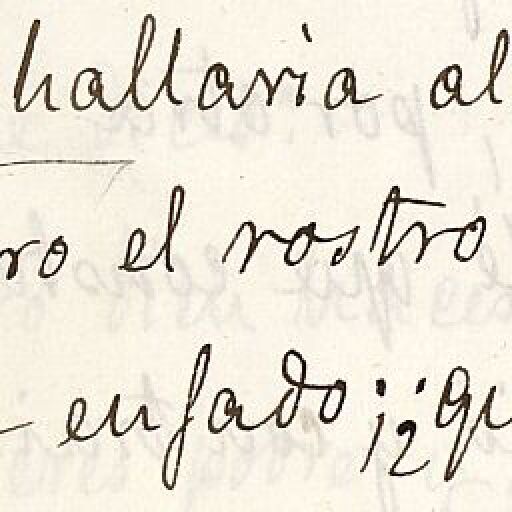 hallaria al
ro el rostro
enfado; ¿qu